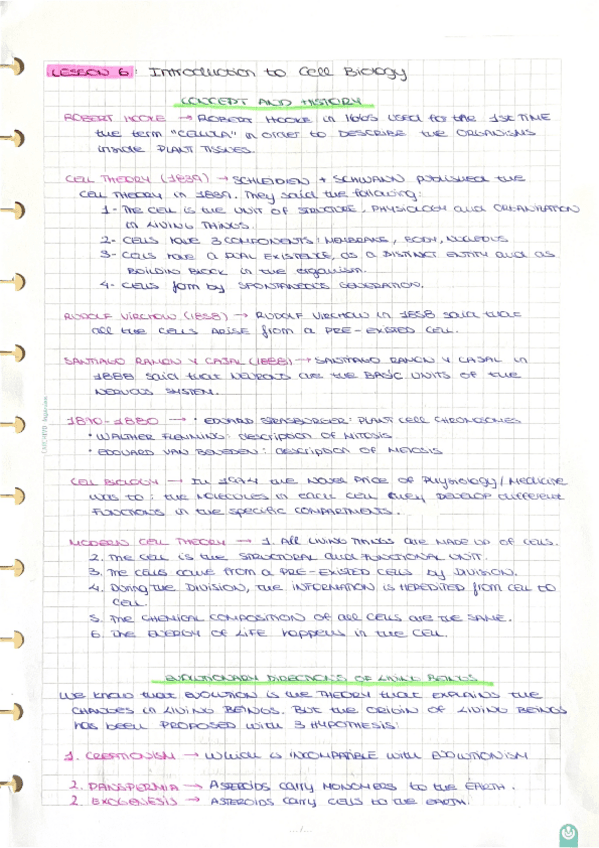 LESSON 6: Introduction to Cell Biology
CONCEPT AND HISTORY
ROBERT HOOKE → ROBERT HOOKE in 1665 used for the 1st TIME
the term "CELLULA" in order to DESCRIBE the ORGANISMS
inside PLANT TISSUES.
CELL THEORY (1839) → SCHLEIDEN + SCHWANN published the
CELL THEORY in 1839. They said the following:
1- The cell is the UNIT OF STRUCTURE, PHYSIOLOGY and ORGANISATION
in LIVING THINGS.
2- CELLS have 3 COMPONENTS: MEMBRANE, BODY, NUCLEOUS
3- Cells have a DUAL EXISTENCE, as a DISTINCT ENTITY and as
BUILDING BLOCK in the organism.
4- CELLS form by SPONTANEOUS GENERATION.
RUDOLF VIRCHOW (1858) → RUDOLF VIRCHOW in 1858 said that
all the CELLS ARISE from a PRE-EXISTED CELL.
SANTIAGO RAMON Y CAJAL (1888) → SANTIAGO RAMON Y CAJAL in
1888 said that NEURONS are the BASIC UNITS OF the
NERVOUS SYSTEM.
1870-1880 → · EDUARD STRASBURGER: PLANT CELL CHROMOSOMES
· WALTHER FLEMMING: description of MITOSIS
· EDOUARD VAN BENEDEN: description of MEIOSIS
CELL BIOLOGY → In 1974 the NOBEL PRICE of Physiology/Medicine
was to: the MOLECULES in each CELL they DEVELOP different
FUNCTIONS in the specific COMPARTMENTS.
MODERN CELL THEORY → 1. All LIVING THINGS are MADE UP OF CELLS.
2. The CELL is the STRUCTURAL and FUNCTIONAL UNIT.
3. The CELLS come from a PRE-EXISTED CELLS by DIVISION.
4. During the DIVISION, the INFORMATION is HEREDITED from CELL TO
CELL.
5. The CHEMICAL COMPOSITION OF all CELLS are the SAME.
6. The ENERGY OF LIFE happens in the CELL.
EVOLUTIONARY DIRECTIONS OF LIVING BEINGS
We know that EVOLUTION is the THEORY that EXPLAINS the
CHANGES in LIVING BEINGS. But the ORIGIN OF LIVING BEINGS
has been PROPOSED with 3 HYPOTHESIS:
1. CREATIONISM → Which is INCOMPATIBLE with EVOLUTIONISM
2. PANSPERMIA → ASTEROIDS carry MONOMERS to the EARTH.
2. EXOGENESIS → ASTEROIDS carry CELLS to the EARTH.
.../...